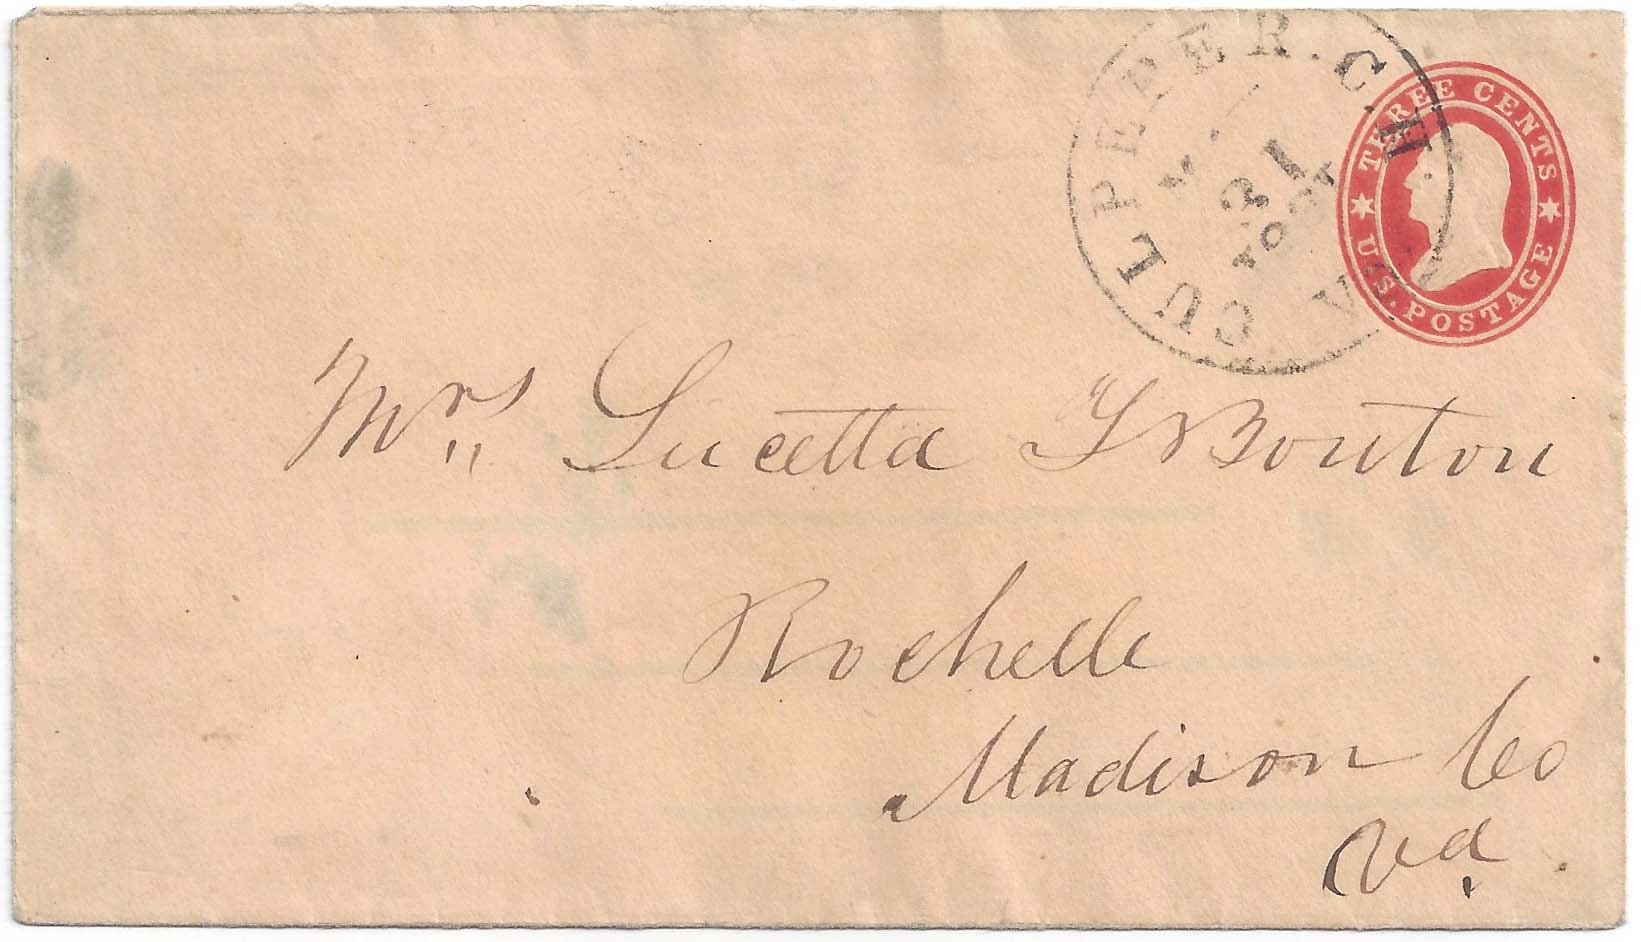 CULPEPER. C. H. VA
21
THREE CENTS
U.S. POSTAGE
Mrs Lucetta Bouton
Rochelle
Madison Co
Va